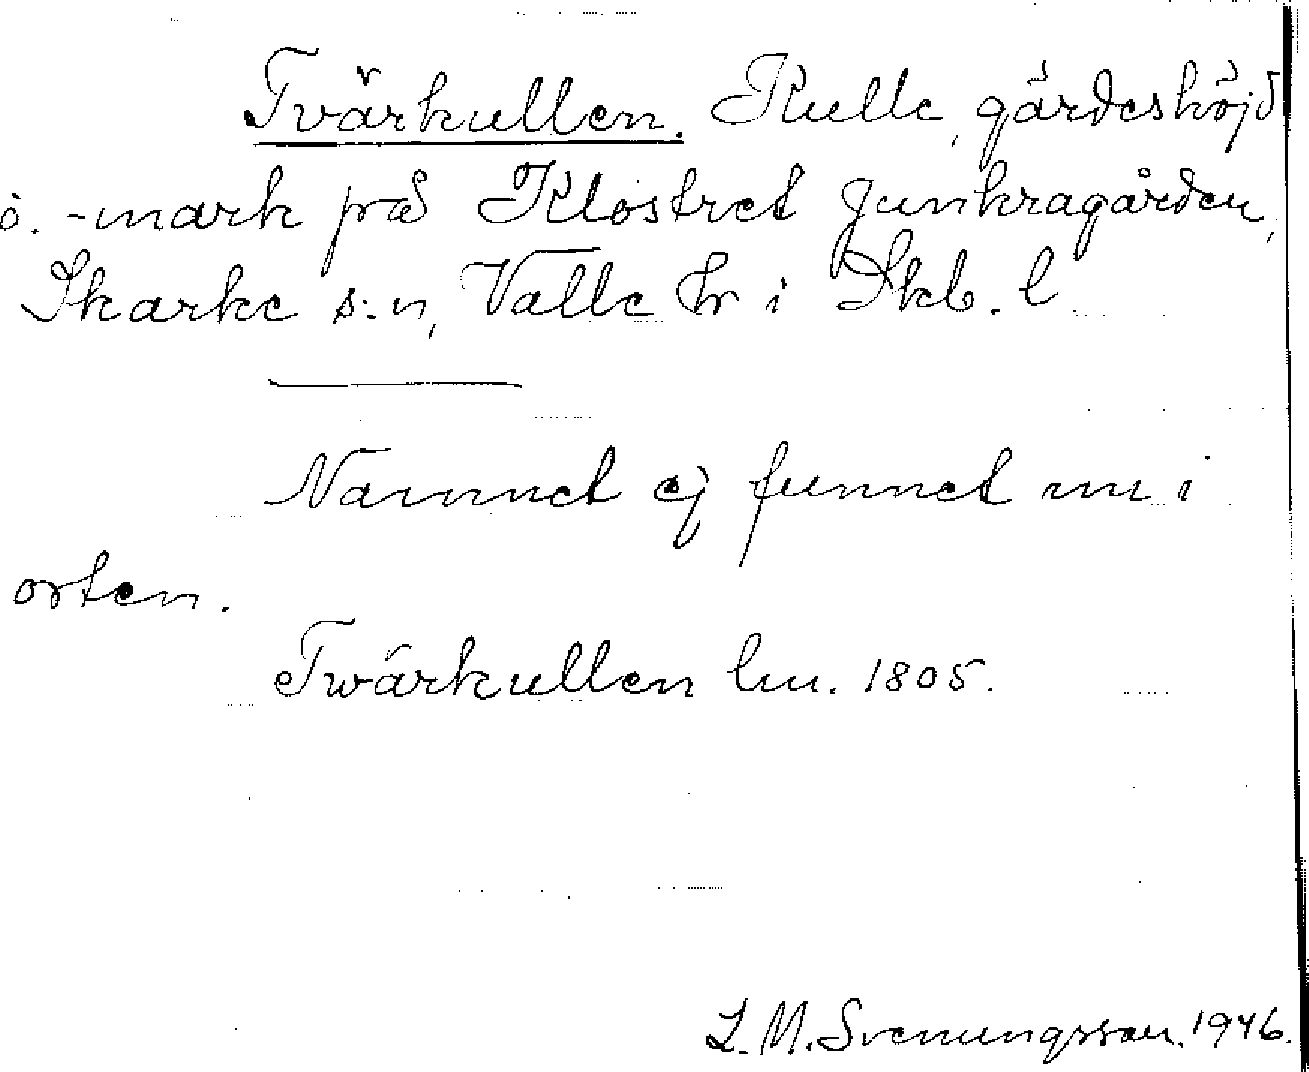 Tvärkullen. Kulle, gärdeshöjd
o. -mark på Klostret Junkragården,
Skarke s:n, Valle hr i Skb. l
Namnet ej funnet nu i
orten.
Twärkullen lm. 1805.
L. M. Svenungsson. 1946.